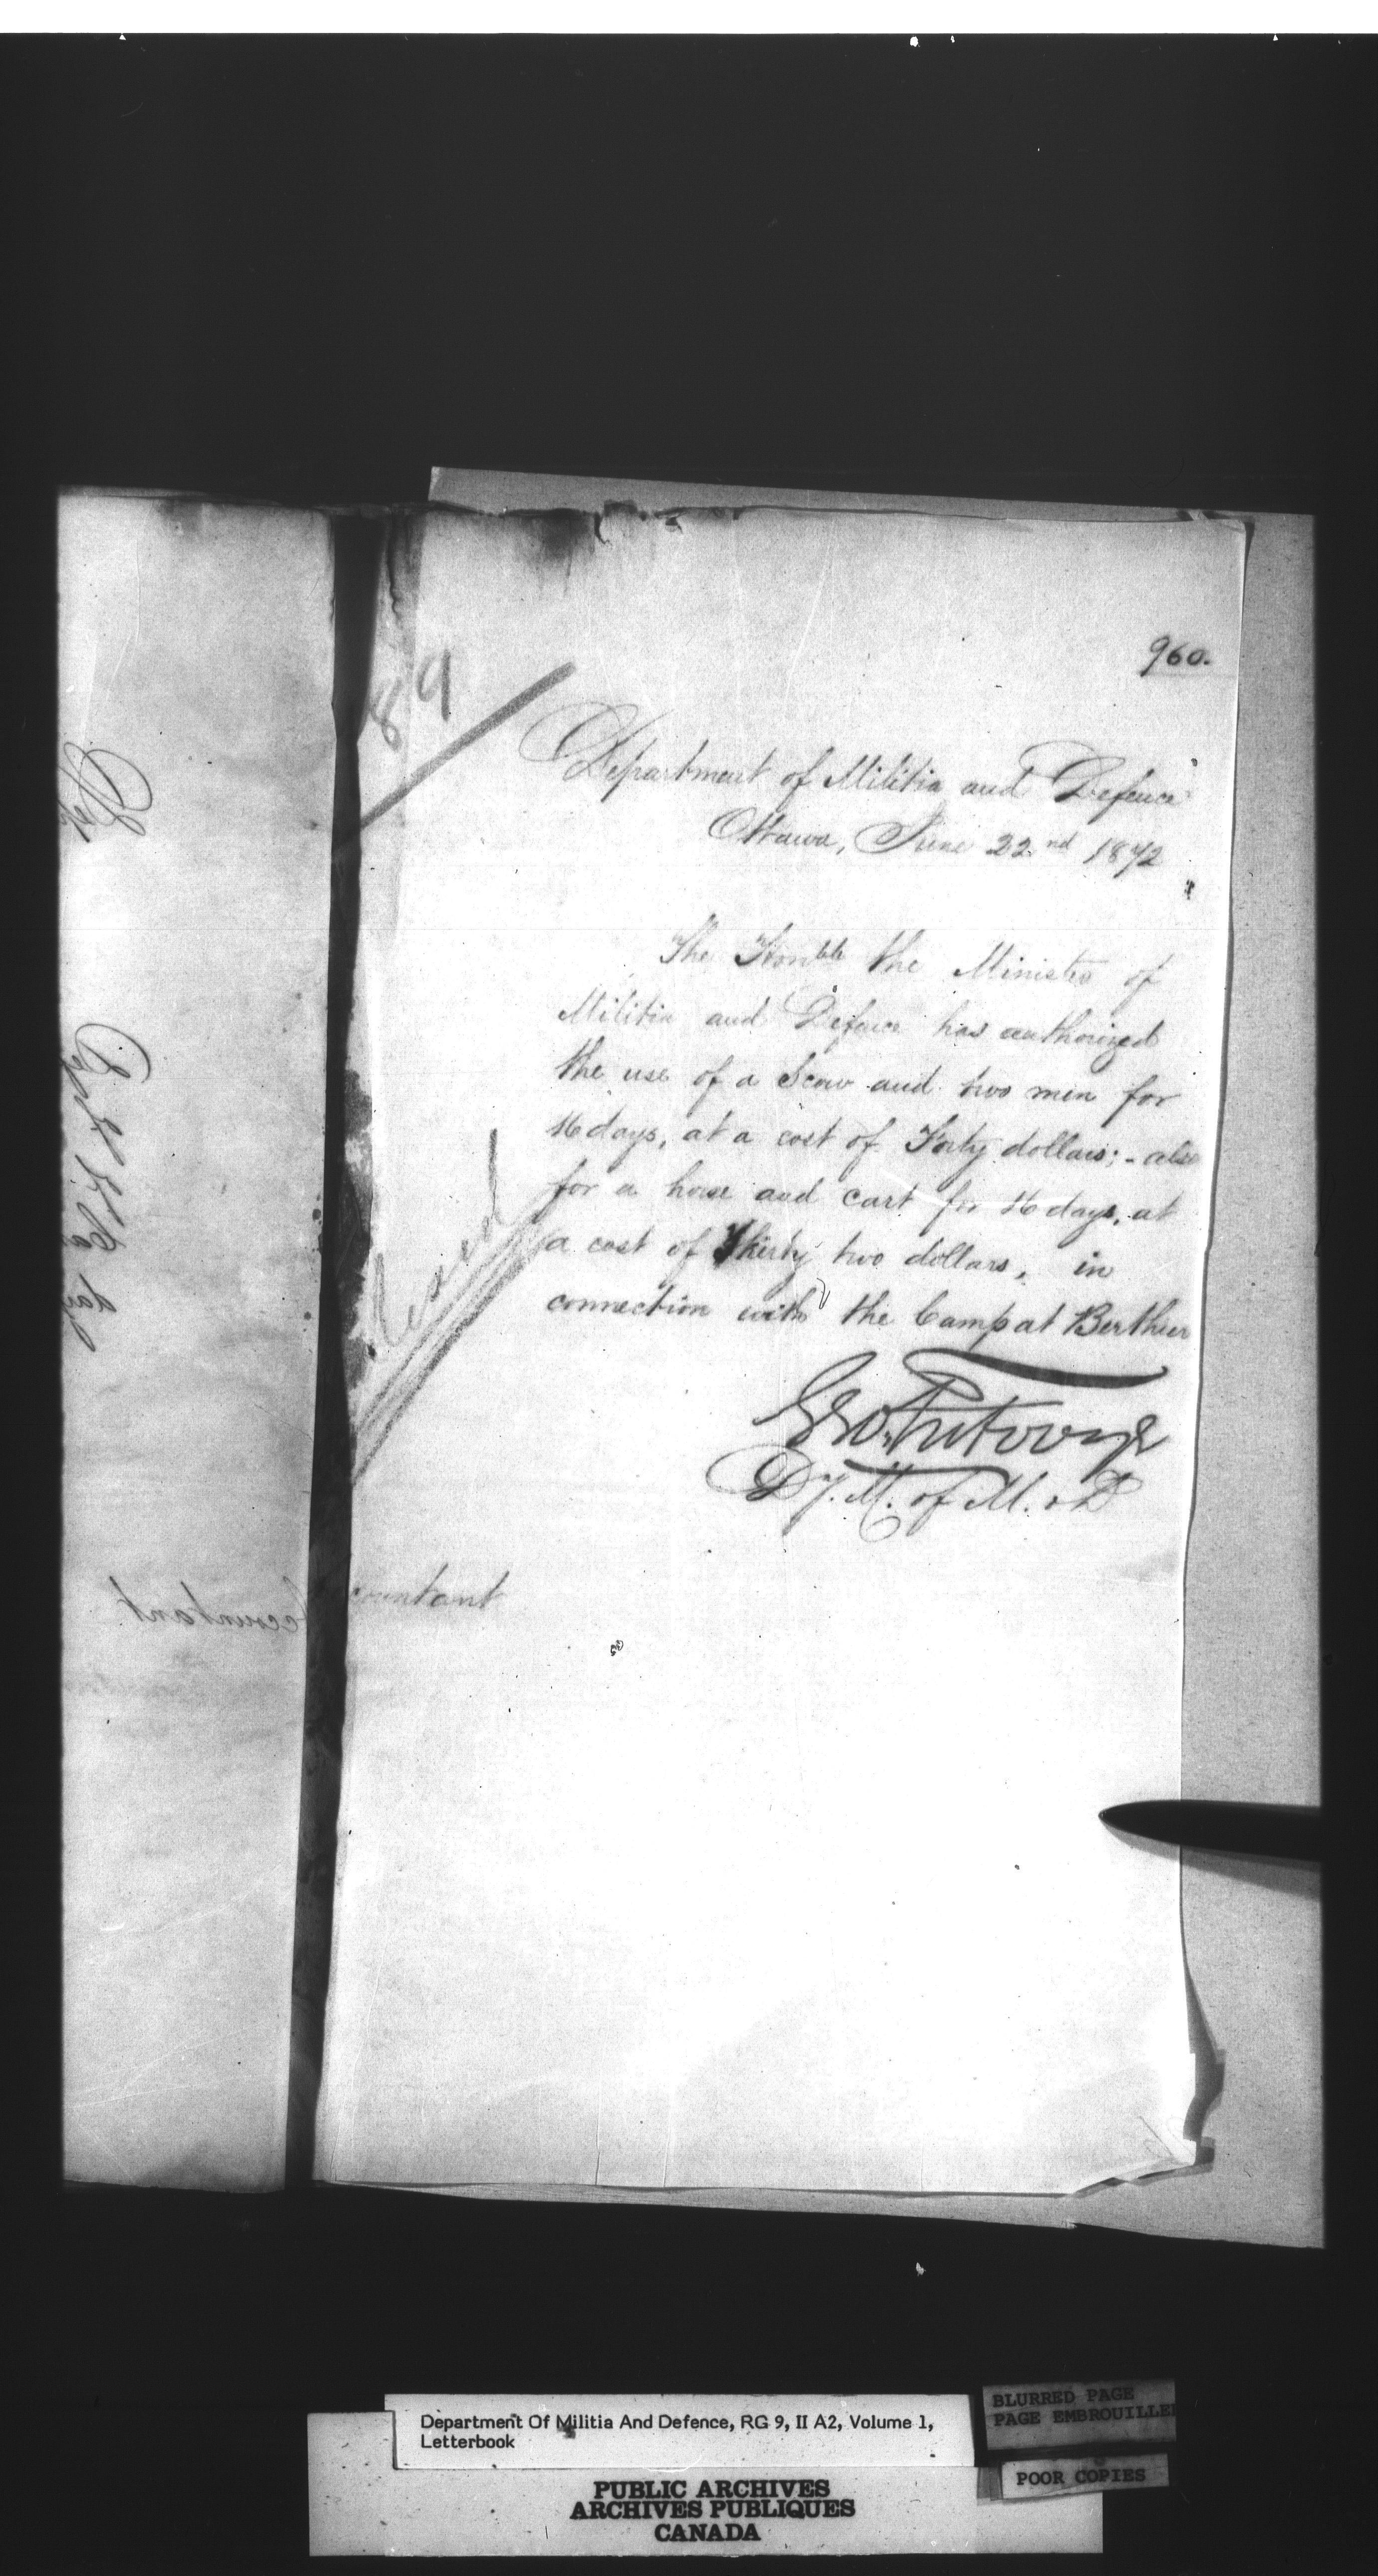 960.
89
Department of Militia and Defence
Ottawa, June 22nd 1872
The Honble the Minister of
Militia and Defence has authorized
the use of a Scow and two men for
16 days, at a cost of Forty dollars; - also
for a horse and cart for 16 days, at
a cost of Thirty two dollars, in
connection with the Camp at Berthier
Geo. Futvoye
Dy. M. of M. & D
countant
Department Of Militia And Defence, RG 9, II A2, Volume 1,
Letterbook
BLURRED PAGE
PAGE EMBROUILLEE
POOR COPIES
PUBLIC ARCHIVES
ARCHIVES PUBLIQUES
CANADA